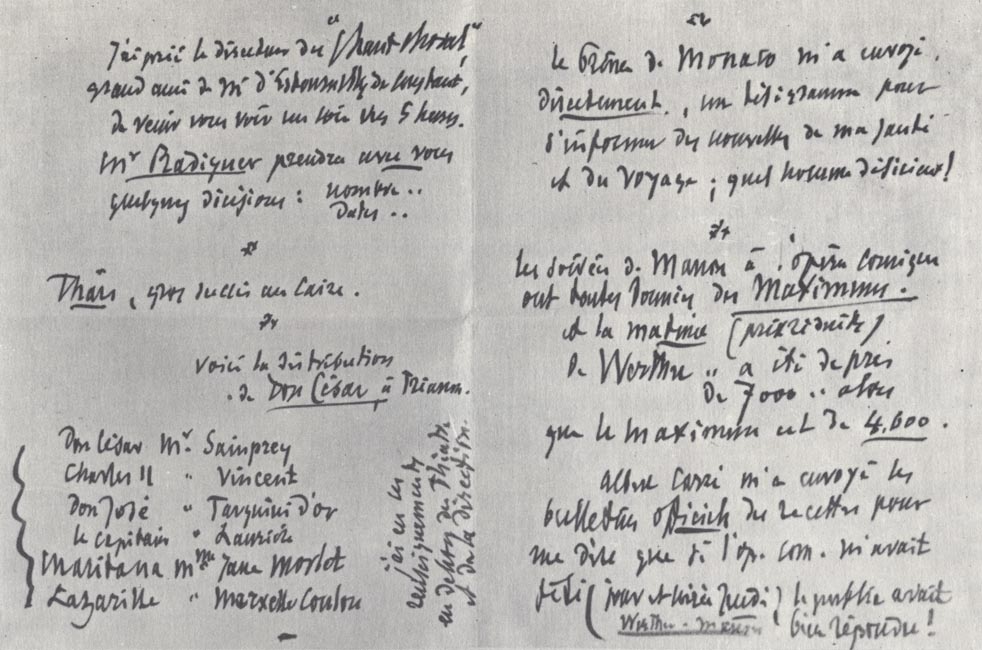 J'ai prié le directeur du "Chant choral",
grand ami de Mr d'Estournelles de Constant,
de venir vous voir un soir vers 5 heures.
Mr Radiguer prendra avec vous
quelques décisions : nombre ..
Dates ..
Thaïs, gros succès au Caire.
Voici la distribution
de Don César, à Trianon.
Don César Mr. Sainprey
Charles II " Vincent
Don José " Tarquini d'or
le capitain " Laurick
Maritana Mme Jane Morlet
Lazarille " Marcelle Coulon
j'ai eu ces
renseignements
en dehors du théâtre
et de la direction.
le Prince de Monaco m'a envoyé,
directement, un télégramme pour
s'informer des nouvelles de ma santé
et du voyage ; quel homme délicieux !
les soirées de Manon à l'opéra comique
ont toutes donné du Maximum.
et la matinée (prix réduits)
de Werther .. a été de près
de 7000 .. alors
que le maximum est de 4,600.
Albert Carré m'a envoyé les
bulletins officiels des recettes pour
me dire que si l'op. com. m'avait
fêté (jour et soirée Jeudi) le public avait
Werther - Manon
bien répondu !